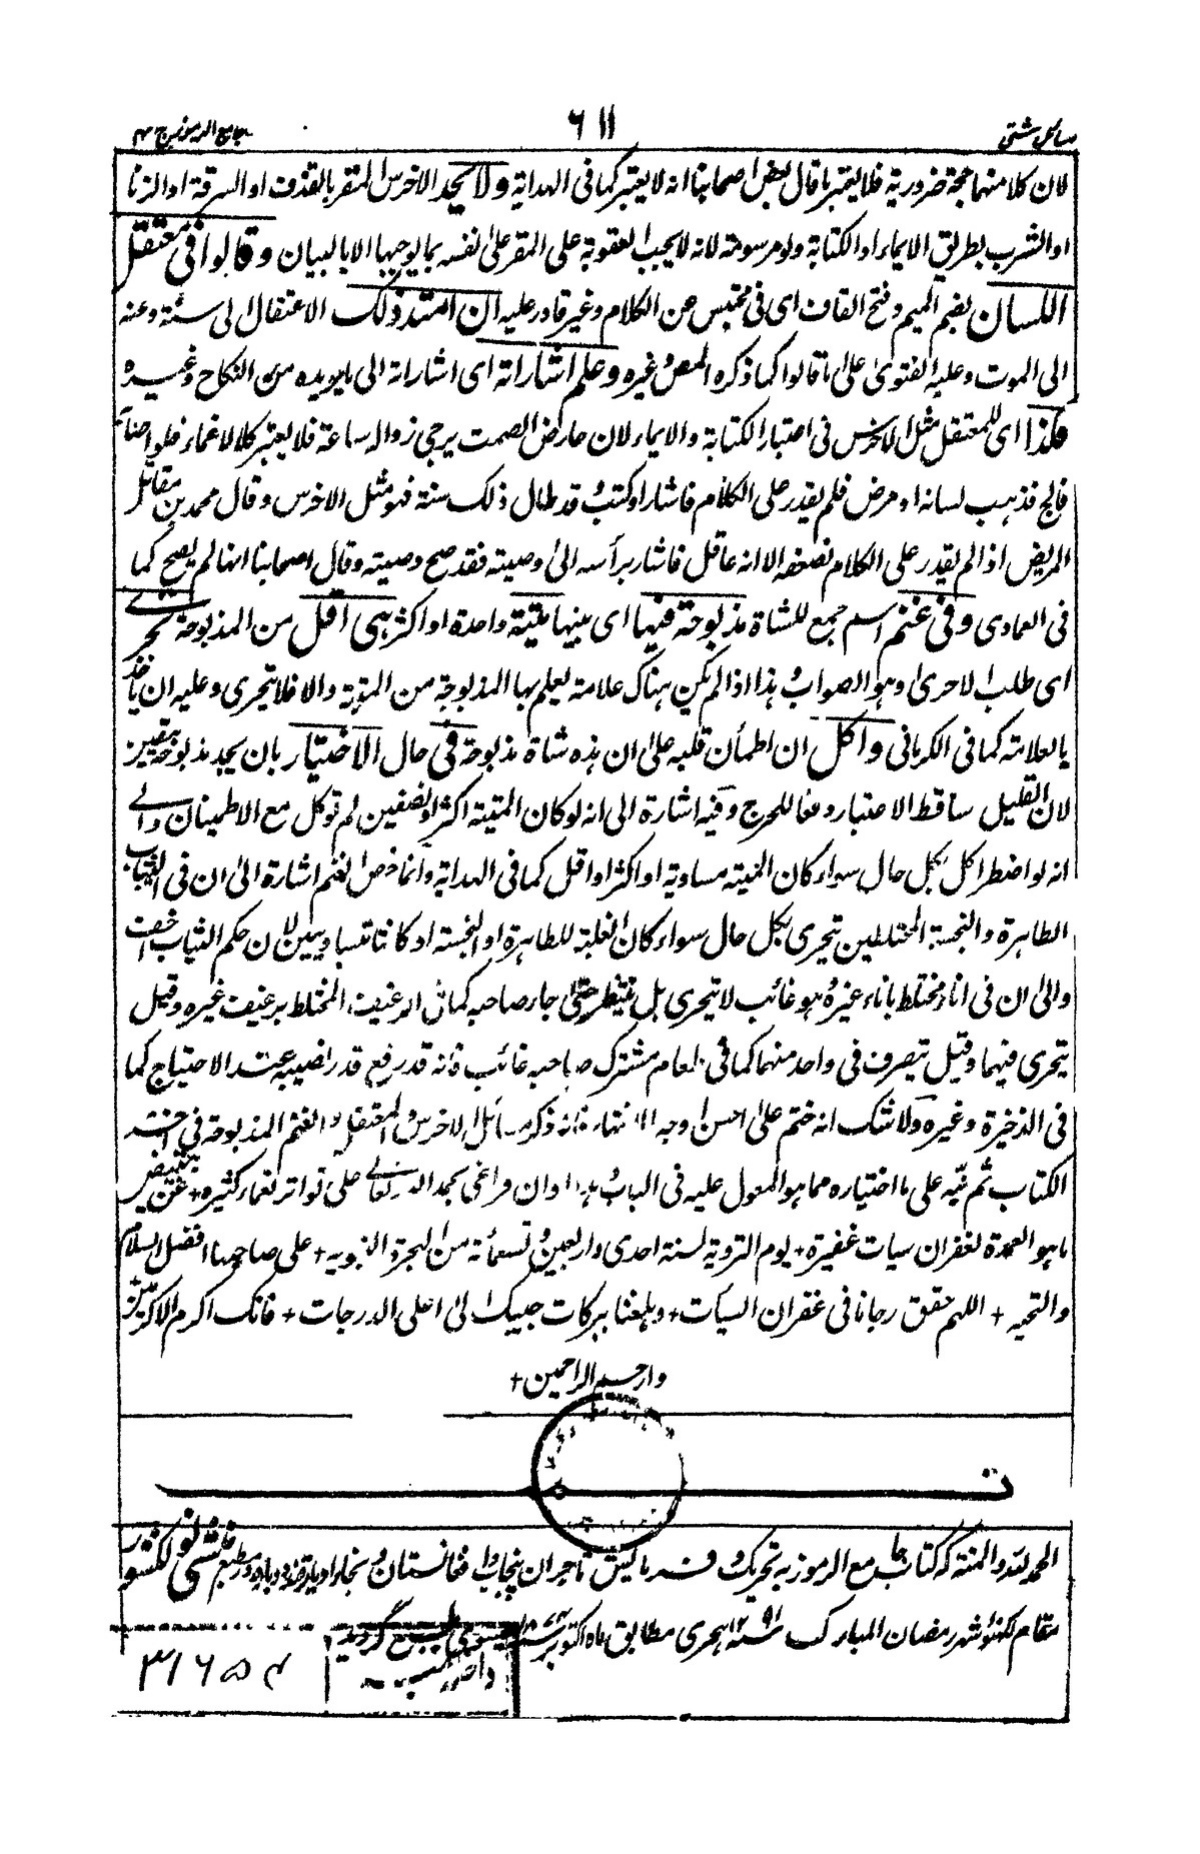 مسائل شتى ٦١١ جامع الرموز ج ٣
لان كلا منهما حجة ضرورية فلا يعتبر ما قال بعض اصحابنا انه لا يعتبر كما فى الهداية ولا يحد الاخرس المقر بالقذف او السرقة او الزنا
او الشرب بطريق الايماء او الكتابة ولو مرسومة لانه لا يجب العقوبة على المقر على نفسه بما يوجبها الا بالبيان وقالوا فى معتقل
اللسان بضم الميم وفتح القاف اى فى محتبس عن الكلام وغير قادر عليه ان امتد ذلك الاعتقال الى سنة وعنه
الى الموت وعليه الفتوى على ما قالوا كما ذكره المص وغيره وعلم اشاراته اى اشاراته الى ما يريده من النكاح وغيره
فكذا اى المعتقل مثل الاخرس فى اعتبار الكتابة والايماء لان عارض الصمت يرجى زواله ساعة فلا يعتبر كالاغماء فلو اصابه
فالج فذهب لسانه او مرض فلم يقدر على الكلام فاشار او كتب وقد طال ذلك سنة فهو مثل الاخرس وقال محمد بن مقاتل
المريض اذا لم يقدر على الكلام لضعفه الا انه عاقل فاشار برأسه الى وصيته فقد صح وصيته وقال اصحابنا انها لم يصح كما
فى العمادى وفى غنم اسم جمع للشاة مذبوحة فيها اى بينها ميتة واحدة او اكثر هى اقل من المذبوحة تحرى
اى طلب الاحرى وهو الصواب هذا اذا لم يكن هناك علامة يعلم بها المذبوحة من الميتة والا فلا يتحرى وعليه ان ياخذ
بالعلامة كما فى الكرمانى واكل ان اطمأن قلبه على ان هذه شاة مذبوحة فى حال الاختيار بان يجد مذبوحة بيقين
لان القليل ساقط الاعتبار دفعا للحرج وفيه اشارة الى انه لو كان الميتة اكثر او نصفين لم توكل مع الاطمينان والى
انه لو اضطر اكل بكل حال سواء كان الميتة مساوية او اكثر او اقل كما فى الهداية وانما خص الغنم اشارة الى ان فى الثياب
الطاهرة والنجسة المختلطين يتحرى بكل حال سواء كان الغلبة للطاهرة او النجسة او كانتا متساويين لان حكم الثياب اخف
والى ان فى اناء مختلط باناء غيره وهو غائب لا يتحرى بل ينتظر حتى جاء صاحبه كما فى الرغيف المختلط برغيف غيره وقيل
يتحرى فيهما وقيل يتصرف فى واحد منهما كما فى طعام مشترك صاحبه غائب فانه قد رفع قدر نصيبه عند الاحتياج كما
فى الذخيرة وغيره ولا شك انه ختم على احسن وجه الانتهاء فانه ذكر مسائل الاخرس والمعتقل والغنم المذبوحة فى آخر
الكتاب ثم نبه على ما اختياره مما هو المعول عليه فى الباب هذا اوان فراغى بحمد الله تعالى على تواتر نعماء كثيره + عن تبييض
ما هو العمدة لغفران سيات غفيرة + يوم التروية لسنة احدى واربعين وتسعمائة من الهجرة النبويه + على صاحبها افضل السلام
والتحيه + اللهم حقق رجانا فى غفران السيآت + وبلغنا ببركات حبيبك الى اعلى الدرجات + فانك اكرم الاكرمين
وارحم الراحمين +
تمت
الحمد لله والمنة كه كتاب جامع الرموز به تحريك و فرمايش تاجران پنجاب و افغانستان و بخارا در مطبع منشى نولكشور
مقام لكهنؤ شهر رمضان المبارك ١٢٩١ سنه هجرى مطابق ماه اكتوبر عيسوى طبع گرديد
داخله نمبر
٣١٦٥٤